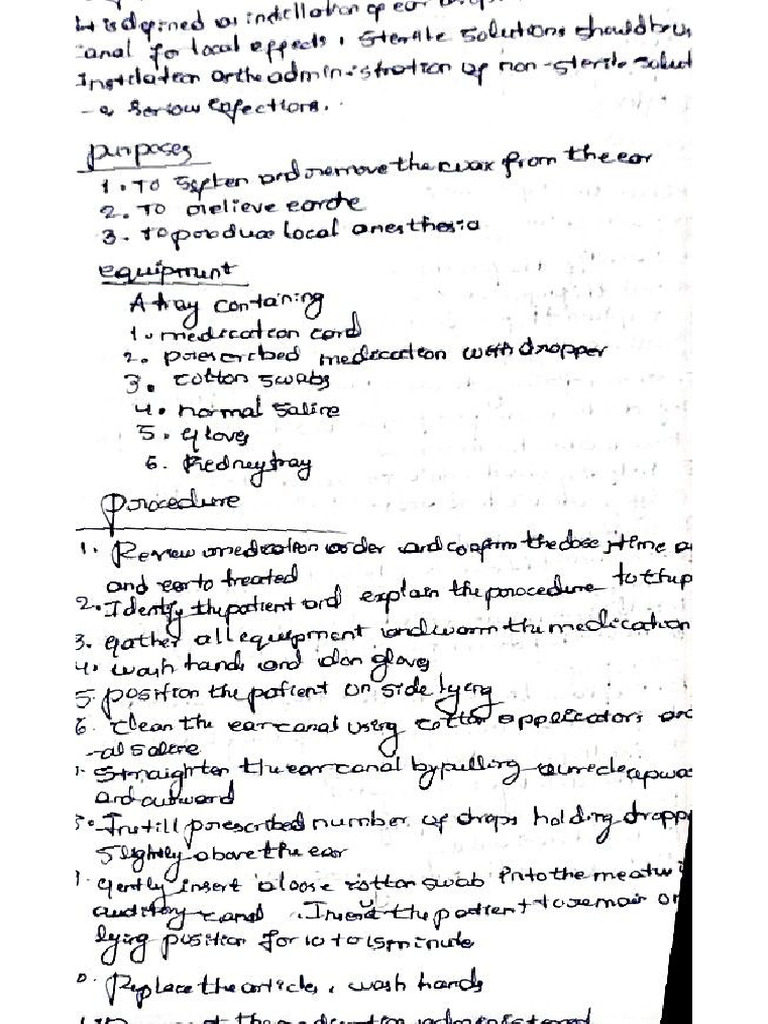 It is defined as instillation of ear
canal for local effects, sterile solutions should be us
Instilation or the administration of non-sterile solut
- a serious infections.
purposes
1. TO soften and remove the wax from the ear
2. TO relieve earche
3. To produce local anesthesia
equipment
A tray containing
1. medication card
2. prescribed medication with dropper
3. cotton swabs
4. normal saline
5. gloves
6. Kidney tray
procedure
1. Review medication order and confirm the dose, time
and ear to treated
2. Identify the patient and explain the procedure to the p
3. gather all equipment and warm the medication
4. wash hands and don gloves
5. position the patient on side lying
6. clean the ear canal using cotton applicators and
-al saline
straighten the ear canal by pulling auricle upwa
and outward
Instill prescribed number of drops holding dropp
slightly above the ear
gently insert a loose cotton swab into the meatus
auditory canal. the patient to remain on
lying position for 10 to 15 minute
Replace the articles, wash hands
the medication administered